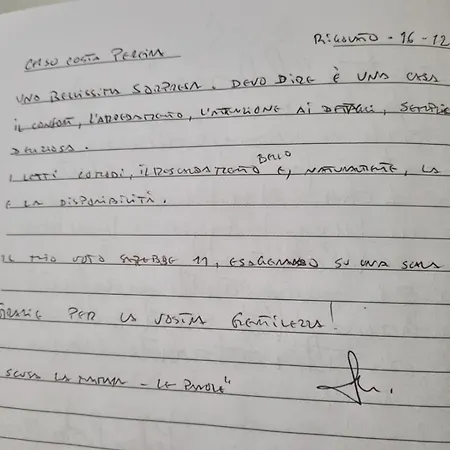 RIGOLATO - 16-12
CASO COSTA PERARIA
UNA BELLISSIMA SORPRESA. DEVO DIRE È UNA CASA
IL CONFORT, L'ARREDAMENTO, L'ATTENZIONE AI DETTAGLI, SEMPLICE
DELIZIOSA.
I LETTI COMODI, IL RISCALDAMENTO BELLO E, NATURALMENTE, LA
E LA DISPONIBILITÀ.
IL MIO VOTO SAREBBE 11, ESAGERANDO SU UNA SCALA
GRAZIE PER LA VOSTRA GENTILEZZA!
SCUSA LA - LE PAROLE"